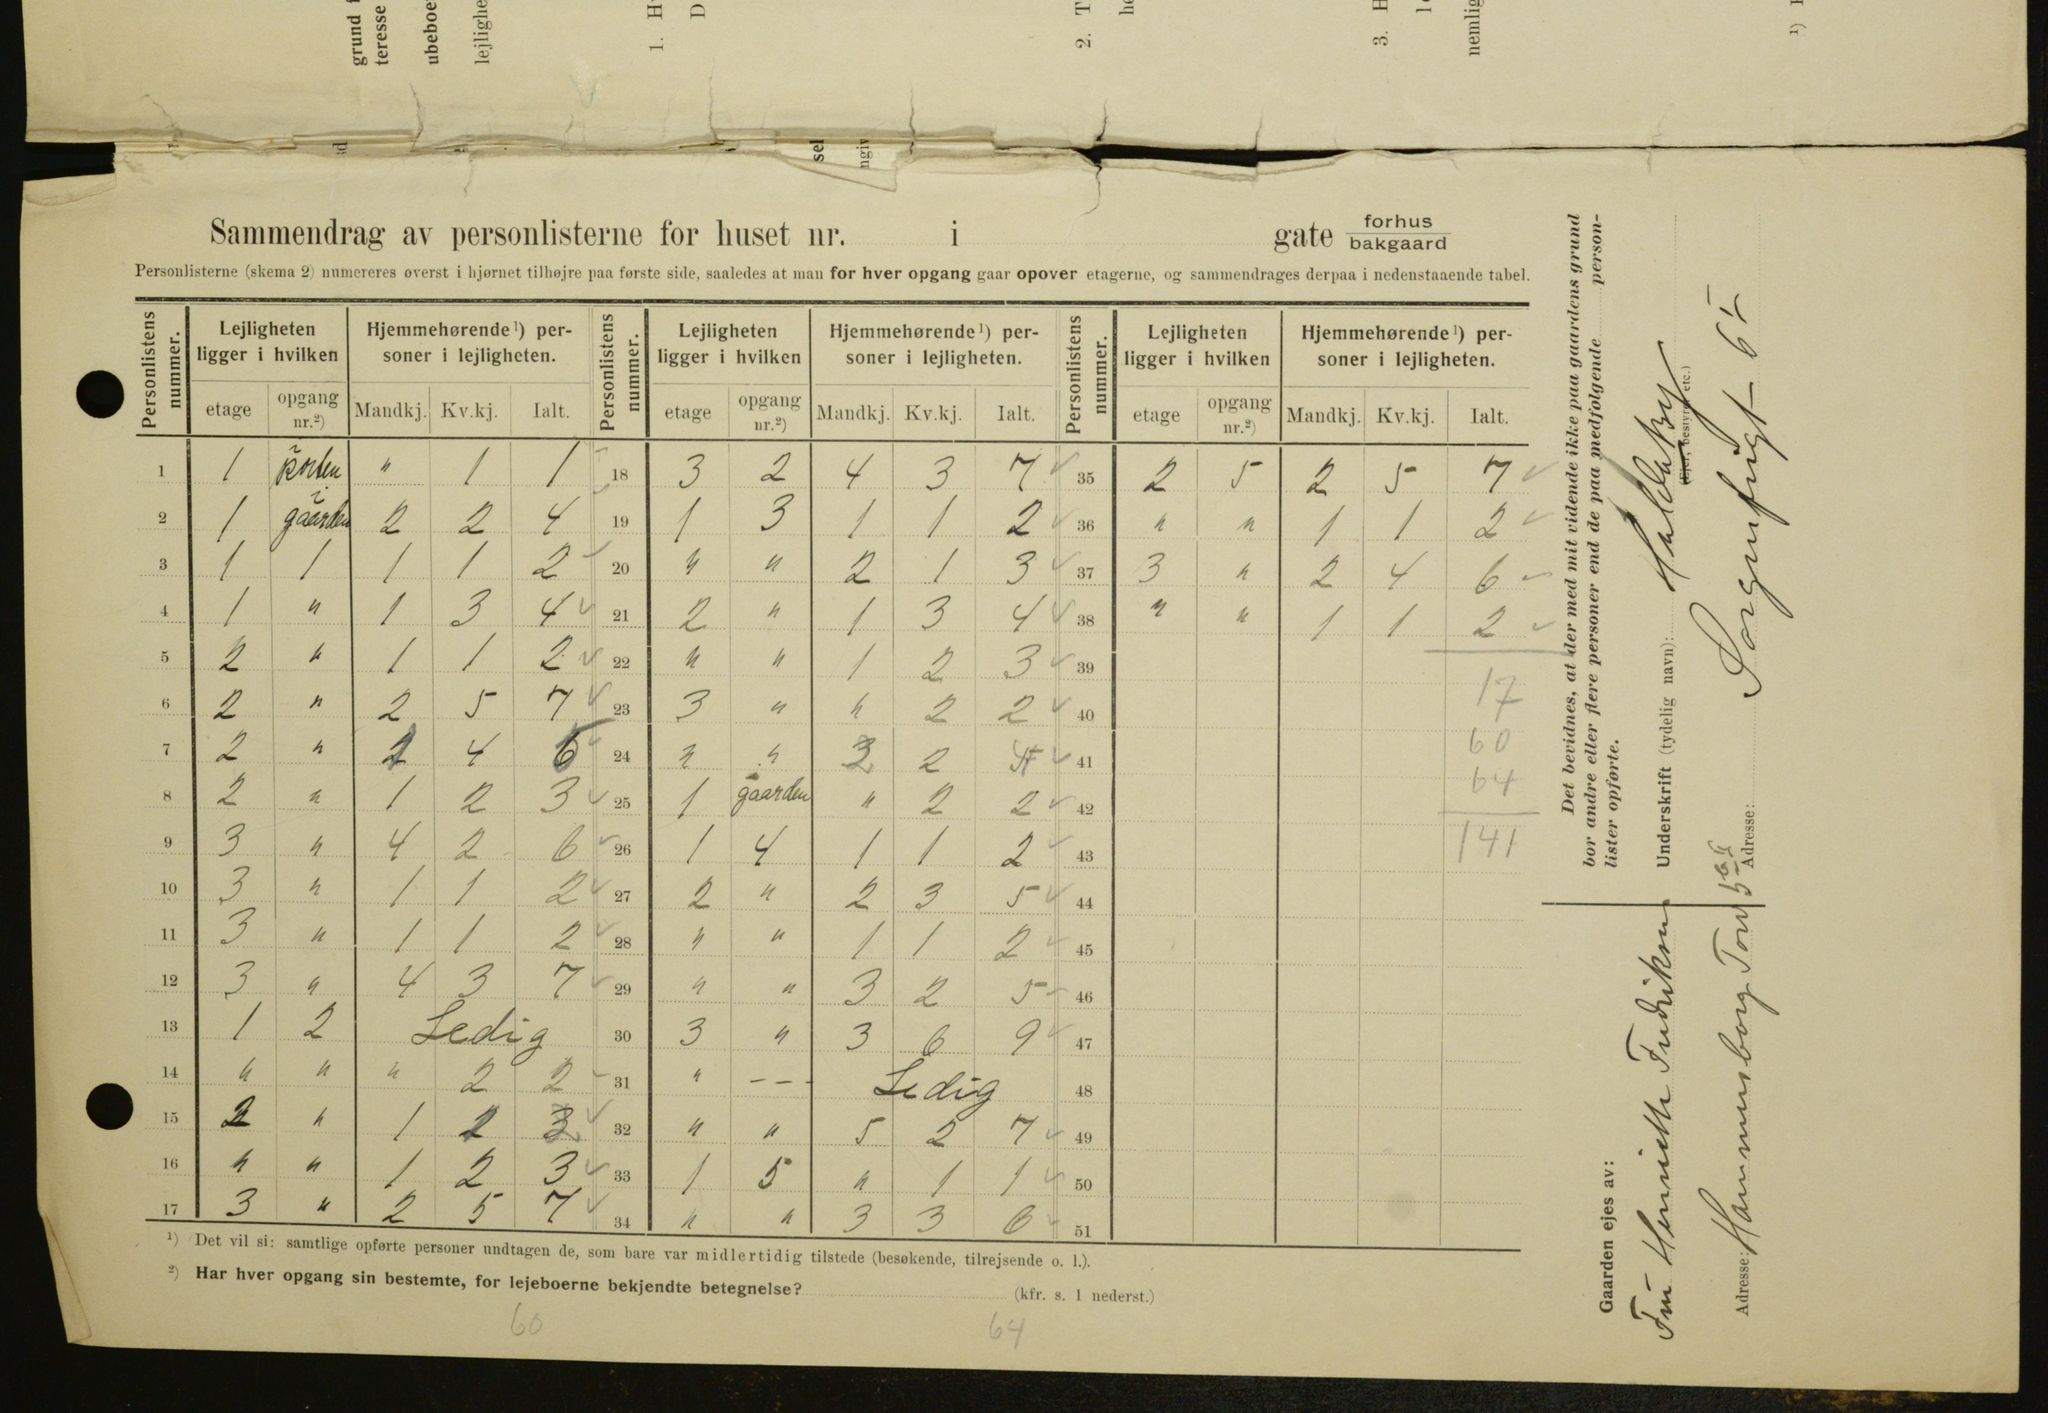 grund
teresse
ubeboe
lejlighe
1. H
D
2. T
he
3. H
1
nemlig
¹)
Sammendrag av personlisterne for huset nr. i gate forhus
bakgaard
Personlisterne (skema 2) numereres øverst i hjørnet tilhøjre paa første side, saaledes at man for hver opgang gaar opover etagerne, og sammendrages derpaa i nedenstaaende tabel.
Personlistens nummer. | Lejligheten ligger i hvilken | Hjemmehørende¹) personer i lejligheten. | Personlistens nummer. | Lejligheten ligger i hvilken | Hjemmehørende¹) personer i lejligheten. | Personlistens nummer. | Lejligheten ligger i hvilken | Hjemmehørende¹) personer i lejligheten.
etage | opgang nr.²) | Mandkj. | Kv.kj. | Ialt. | etage | opgang nr.²) | Mandkj. | Kv.kj. | Ialt. | etage | opgang nr.²) | Mandkj. | Kv.kj. | Ialt.
1 | 1 | i porten | " | 1 | 1 | 18 | 3 | 2 | 4 | 3 | 7 | 35 | 2 | 5 | 2 | 5 | 7
2 | 1 | i gaarden | 2 | 2 | 4 | 19 | 1 | 3 | 1 | 1 | 2 | 36 | " | " | 1 | 1 | 2
3 | 1 | 1 | 1 | 1 | 2 | 20 | " | " | 2 | 1 | 3 | 37 | 3 | " | 2 | 4 | 6
4 | 1 | " | 1 | 3 | 4 | 21 | 2 | " | 1 | 3 | 4 | 38 | " | " | 1 | 1 | 2
5 | 2 | " | 1 | 1 | 2 | 22 | " | " | 1 | 2 | 3 | 39
6 | 2 | " | 2 | 5 | 7 | 23 | 3 | " | " | 2 | 2 | 40 | 17
7 | 2 | " | | 4 | | 24 | " | " | | 2 | 4 | 41 | 60
8 | 2 | " | 1 | 2 | 3 | 25 | 1 | gaarden | " | 2 | 2 | 42 | 64
9 | 3 | " | 4 | 2 | 6 | 26 | 1 | 4 | 1 | 1 | 2 | 43 | 141
10 | 3 | " | 1 | 1 | 2 | 27 | 2 | " | 2 | 3 | 5 | 44
11 | 3 | " | 1 | 1 | 2 | 28 | " | " | 1 | 1 | 2 | 45
12 | 3 | " | 4 | 3 | 7 | 29 | " | " | 3 | 2 | 5 | 46
13 | 1 | 2 | Ledig | 30 | 3 | " | 3 | 6 | 9 | 47
14 | " | " | " | 2 | 2 | 31 | " | --- | Ledig | 48
15 | 2 | " | 1 | | | 32 | " | " | 5 | 2 | 7 | 49
16 | " | " | 1 | 2 | 3 | 33 | 1 | 5 | " | 1 | 1 | 50
17 | 3 | " | 2 | 5 | 7 | 34 | " | " | 3 | 3 | 6 | 51
¹) Det vil si: samtlige opførte personer undtagen de, som bare var midlertidig tilstede (besøkende, tilrejsende o. l.).
²) Har hver opgang sin bestemte, for lejeboerne bekjendte betegnelse? (kfr. s. 1 nederst.)
60 64
Det bevidnes, at der med mit vidende ikke paa gaardens grund
bor andre eller flere personer end de paa medfølgende person-
lister opførte.
Underskrift (tydelig navn): Hald
(Ejer, bestyrer etc.)
Adresse: Sorgenfrigt 6
Gaarden ejes av:
Fru Henriette Fredriksen
Adresse: Hammersborg Torv 5